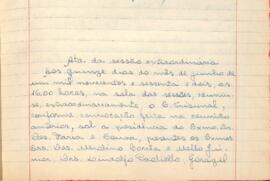 Ata da sessão extraordinária
Aos quinze dias do mês de junho de
um mil novecentos e sessenta e dois, às
16,00 horas, na sala das sessões, reuniu-
se, extraordinariamente, o E. Tribunal,
conforme convocação feita na reunião
anterior, sob a presidência do Exmo. Sr.
Des. Faria e Sousa, presentes os Exmos
Srs. Des. Costa e Mello Jú-
nior, Drs.